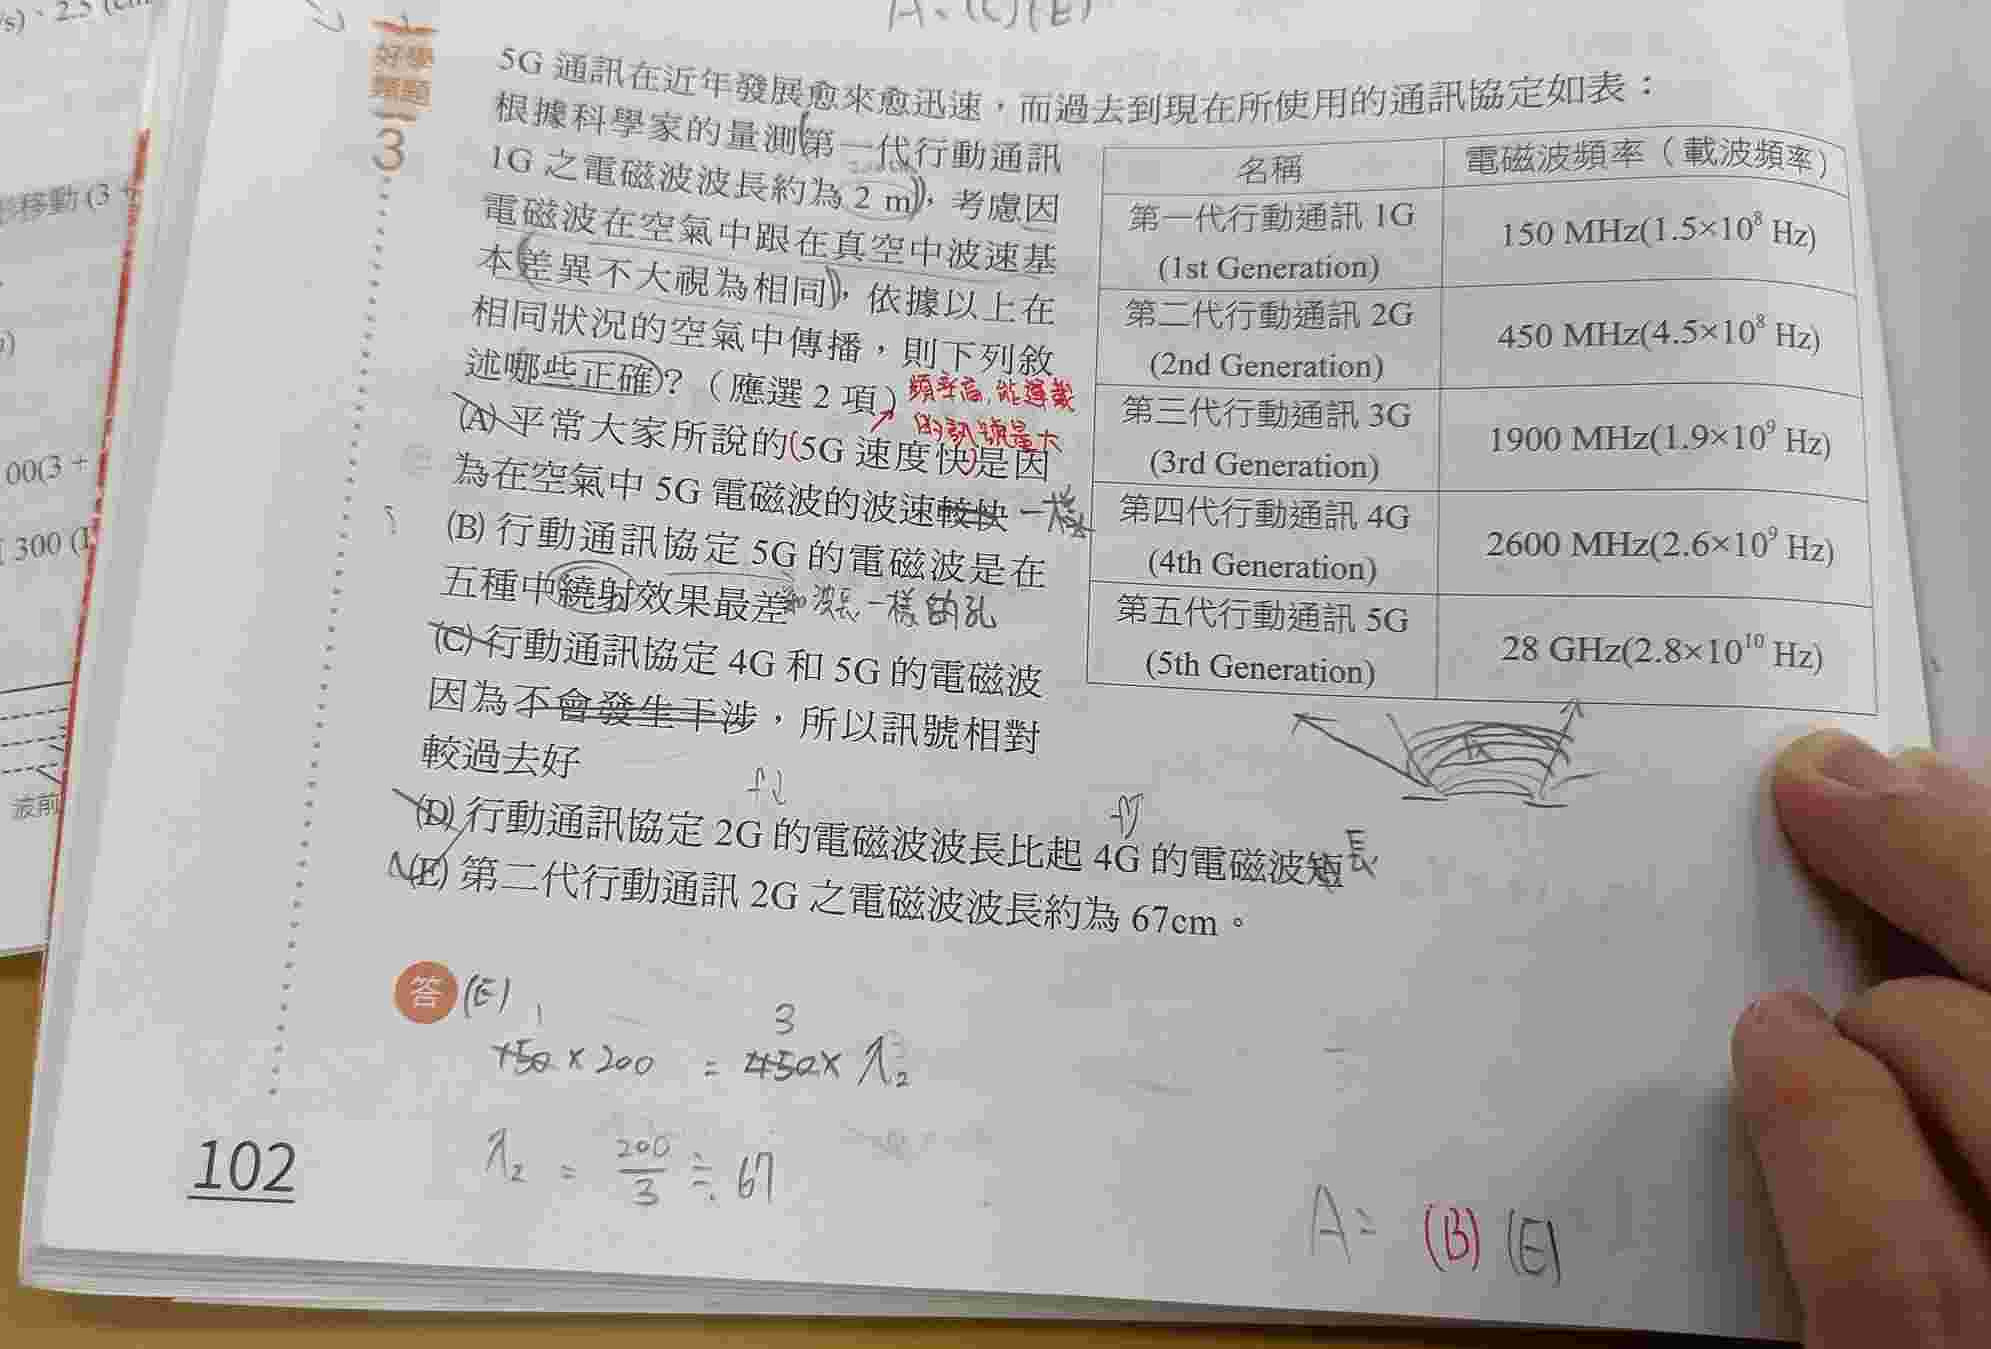 A=(C)(E)
好學
類題
3
5G 通訊在近年發展愈來愈迅速，而過去到現在所使用的通訊協定如表：
根據科學家的量測(第一代行動通訊
1G 之電磁波波長約為 2 m)，考慮因
電磁波在空氣中跟在真空中波速基
本(差異不大視為相同)，依據以上在
相同狀況的空氣中傳播，則下列敘
述哪些正確？（應選 2 項）
頻率高,能運載
的訊號量大
(A) 平常大家所說的(5G 速度快)是因
為在空氣中 5G 電磁波的波速較快 一樣
(B) 行動通訊協定 5G 的電磁波是在
五種中繞射效果最差 和波長一樣的孔
(C) 行動通訊協定 4G 和 5G 的電磁波
因為不會發生干涉，所以訊號相對
較過去好
(D) 行動通訊協定 2G 的電磁波波長比起 4G 的電磁波短 長
(E) 第二代行動通訊 2G 之電磁波波長約為 67cm。
名稱
電磁波頻率（載波頻率）
第一代行動通訊 1G
(1st Generation)
150 MHz(1.5×10⁸ Hz)
第二代行動通訊 2G
(2nd Generation)
450 MHz(4.5×10⁸ Hz)
第三代行動通訊 3G
(3rd Generation)
1900 MHz(1.9×10⁹ Hz)
第四代行動通訊 4G
(4th Generation)
2600 MHz(2.6×10⁹ Hz)
第五代行動通訊 5G
(5th Generation)
28 GHz(2.8×10¹⁰ Hz)
答 (E)
1 3
150 × 200 = 450 × λ₂
λ₂ = 200/3 ≒ 67
A= (B) (E)
102
移動 (3 +
00(3 +
300 (
波前